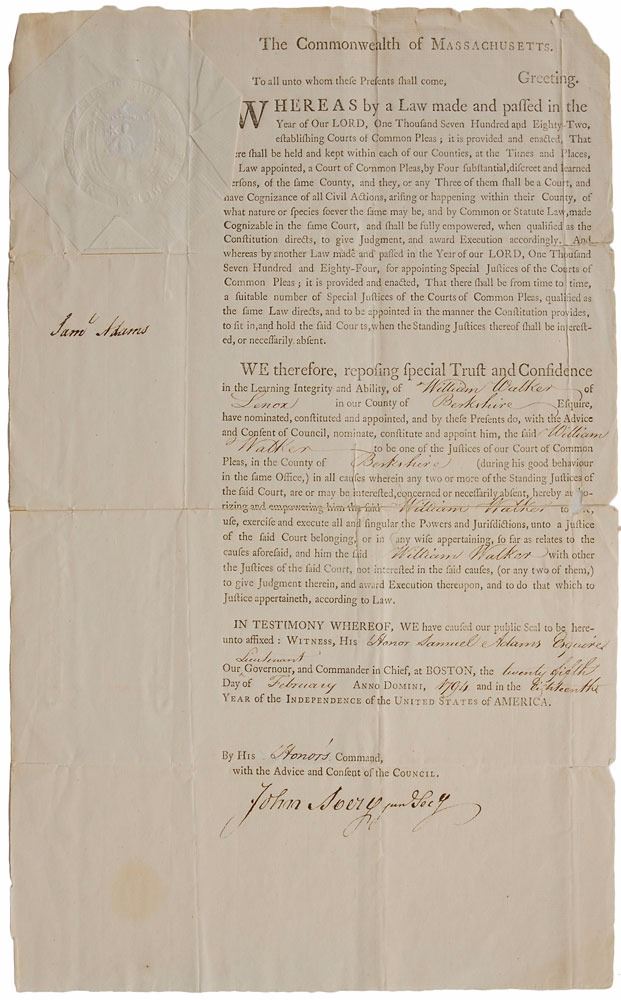 The Commonwealth of MASSACHUSETTS.
To all unto whom theſe Preſents ſhall come, Greeting.
WHEREAS by a Law made and paſſed in the
Year of Our LORD, One Thouſand Seven Hundred and Eighty-Two,
eſtabliſhing Courts of Common Pleas; it is provided and enacted, That
ere ſhall be held and kept within each of our Counties, at the Times and Places,
Law appointed, a Court of Common Pleas, by Four ſubſtantial, diſcreet and learned
erſons, of the ſame County, and they, or any Three of them ſhall be a Court, and
have Cognizance of all Civil Actions, ariſing or happening within their County, of
what nature or ſpecies ſoever the ſame may be, and by Common or Statute Law, made
Cognizable in the ſame Court, and ſhall be fully empowered, when qualified as the
Conſtitution directs, to give Judgment, and award Execution accordingly. And
whereas by another Law made and paſſed in the Year of our LORD, One Thouſand
Seven Hundred and Eighty-Four, for appointing Special Juſtices of the Courts of
Common Pleas; it is provided and enacted, That there ſhall be from time to time,
a ſuitable number of Special Juſtices of the Courts of Common Pleas, qualified as
the ſame Law directs, and to be appointed in the manner the Conſtitution provides,
to ſit in, and hold the ſaid Courts, when the Standing Juſtices thereof ſhall be intereſt-
ed, or neceſſarily abſent.
Saml Adams
WE therefore, repoſing ſpecial Truſt and Confidence
in the Learning Integrity and Ability, of William Walker of
Lenox in our County of Berkshire Eſquire,
have nominated, conſtituted and appointed, and by theſe Preſents do, with the Advice
and Conſent of Council, nominate, conſtitute and appoint him, the ſaid William
Walker to be one of the Juſtices of our Court of Common
Pleas, in the County of Berkshire (during his good behaviour
in the ſame Office,) in all cauſes wherein any two or more of the Standing Juſtices of
the ſaid Court, are or may be intereſted, concerned or neceſſarily abſent, hereby
rizing and empowering him the ſaid William Walker to
uſe, exerciſe and execute all and ſingular the Powers and Juriſdictions, unto a juſtice
of the ſaid Court belonging, or in any wiſe appertaining, ſo far as relates to the
cauſes aforeſaid, and him the ſaid William Walker with other
the Juſtices of the ſaid Court, not intereſted in the ſaid cauſes, (or any two of them,)
to give Judgment therein, and award Execution thereupon, and to do that which to
Juſtice appertaineth, according to Law.
IN TESTIMONY WHEREOF, WE have cauſed our public Seal to be here-
unto affixed: WITNESS, HIS Honor Samuel Adams Esquire
Lieutenant
Our Governour, and Commander in Chief, at BOSTON, the twenty eighth
Day of February ANNO DOMINI, 1794 and in the
YEAR of the INDEPENDENCE of the UNITED STATES of AMERICA.
By HIS Honor's Command,
with the Advice and Conſent of the COUNCIL.
John Avery jun Secy